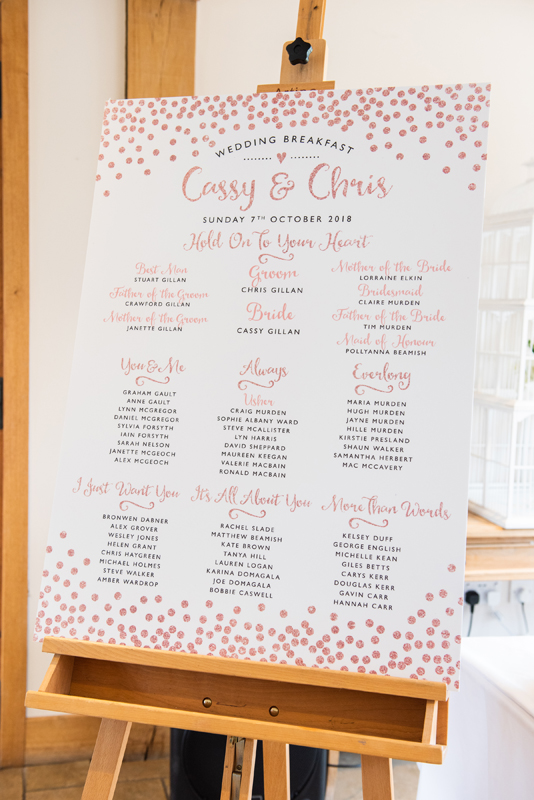 WEDDING BREAKFAST
Cassy & Chris
SUNDAY 7TH OCTOBER 2018
Hold On To Your Heart
Best Man
STUART GILLAN
Father of the Groom
CRAWFORD GILLAN
Mother of the Groom
JANETTE GILLAN
Groom
CHRIS GILLAN
Bride
CASSY GILLAN
Mother of the Bride
LORRAINE ELKIN
Bridesmaid
CLAIRE MURDEN
Father of the Bride
TIM MURDEN
Maid of Honour
POLLYANNA BEAMISH
You & Me
GRAHAM GAULT
ANNE GAULT
LYNN MCGREGOR
DANIEL MCGREGOR
SYLVIA FORSYTH
IAIN FORSYTH
SARAH NELSON
JANETTE MCGEOCH
ALEX MCGEOCH
Always
Usher
CRAIG MURDEN
SOPHIE ALBANY WARD
STEVE MCALLISTER
LYN HARRIS
DAVID SHEPPARD
MAUREEN KEEGAN
VALERIE MACBAIN
RONALD MACBAIN
Everlong
MARIA MURDEN
HUGH MURDEN
JAYNE MURDEN
HILLE MURDEN
KIRSTIE PRESLAND
SHAUN WALKER
SAMANTHA HERBERT
MAC MCCAVERY
I Just Want You
BRONWEN DABNER
ALEX GROVER
WESLEY JONES
HELEN GRANT
CHRIS HAYGREEN
MICHAEL HOLMES
STEVE WALKER
AMBER WARDROP
It's All About You
RACHEL SLADE
MATTHEW BEAMISH
KATE BROWN
TANYA HILL
LAUREN LOGAN
KARINA DOMAGALA
JOE DOMAGALA
BOBBIE CASWELL
More Than Words
KELSEY DUFF
GEORGE ENGLISH
MICHELLE KEAN
GILES BETTS
CARYS KERR
DOUGLAS KERR
GAVIN CARR
HANNAH CARR